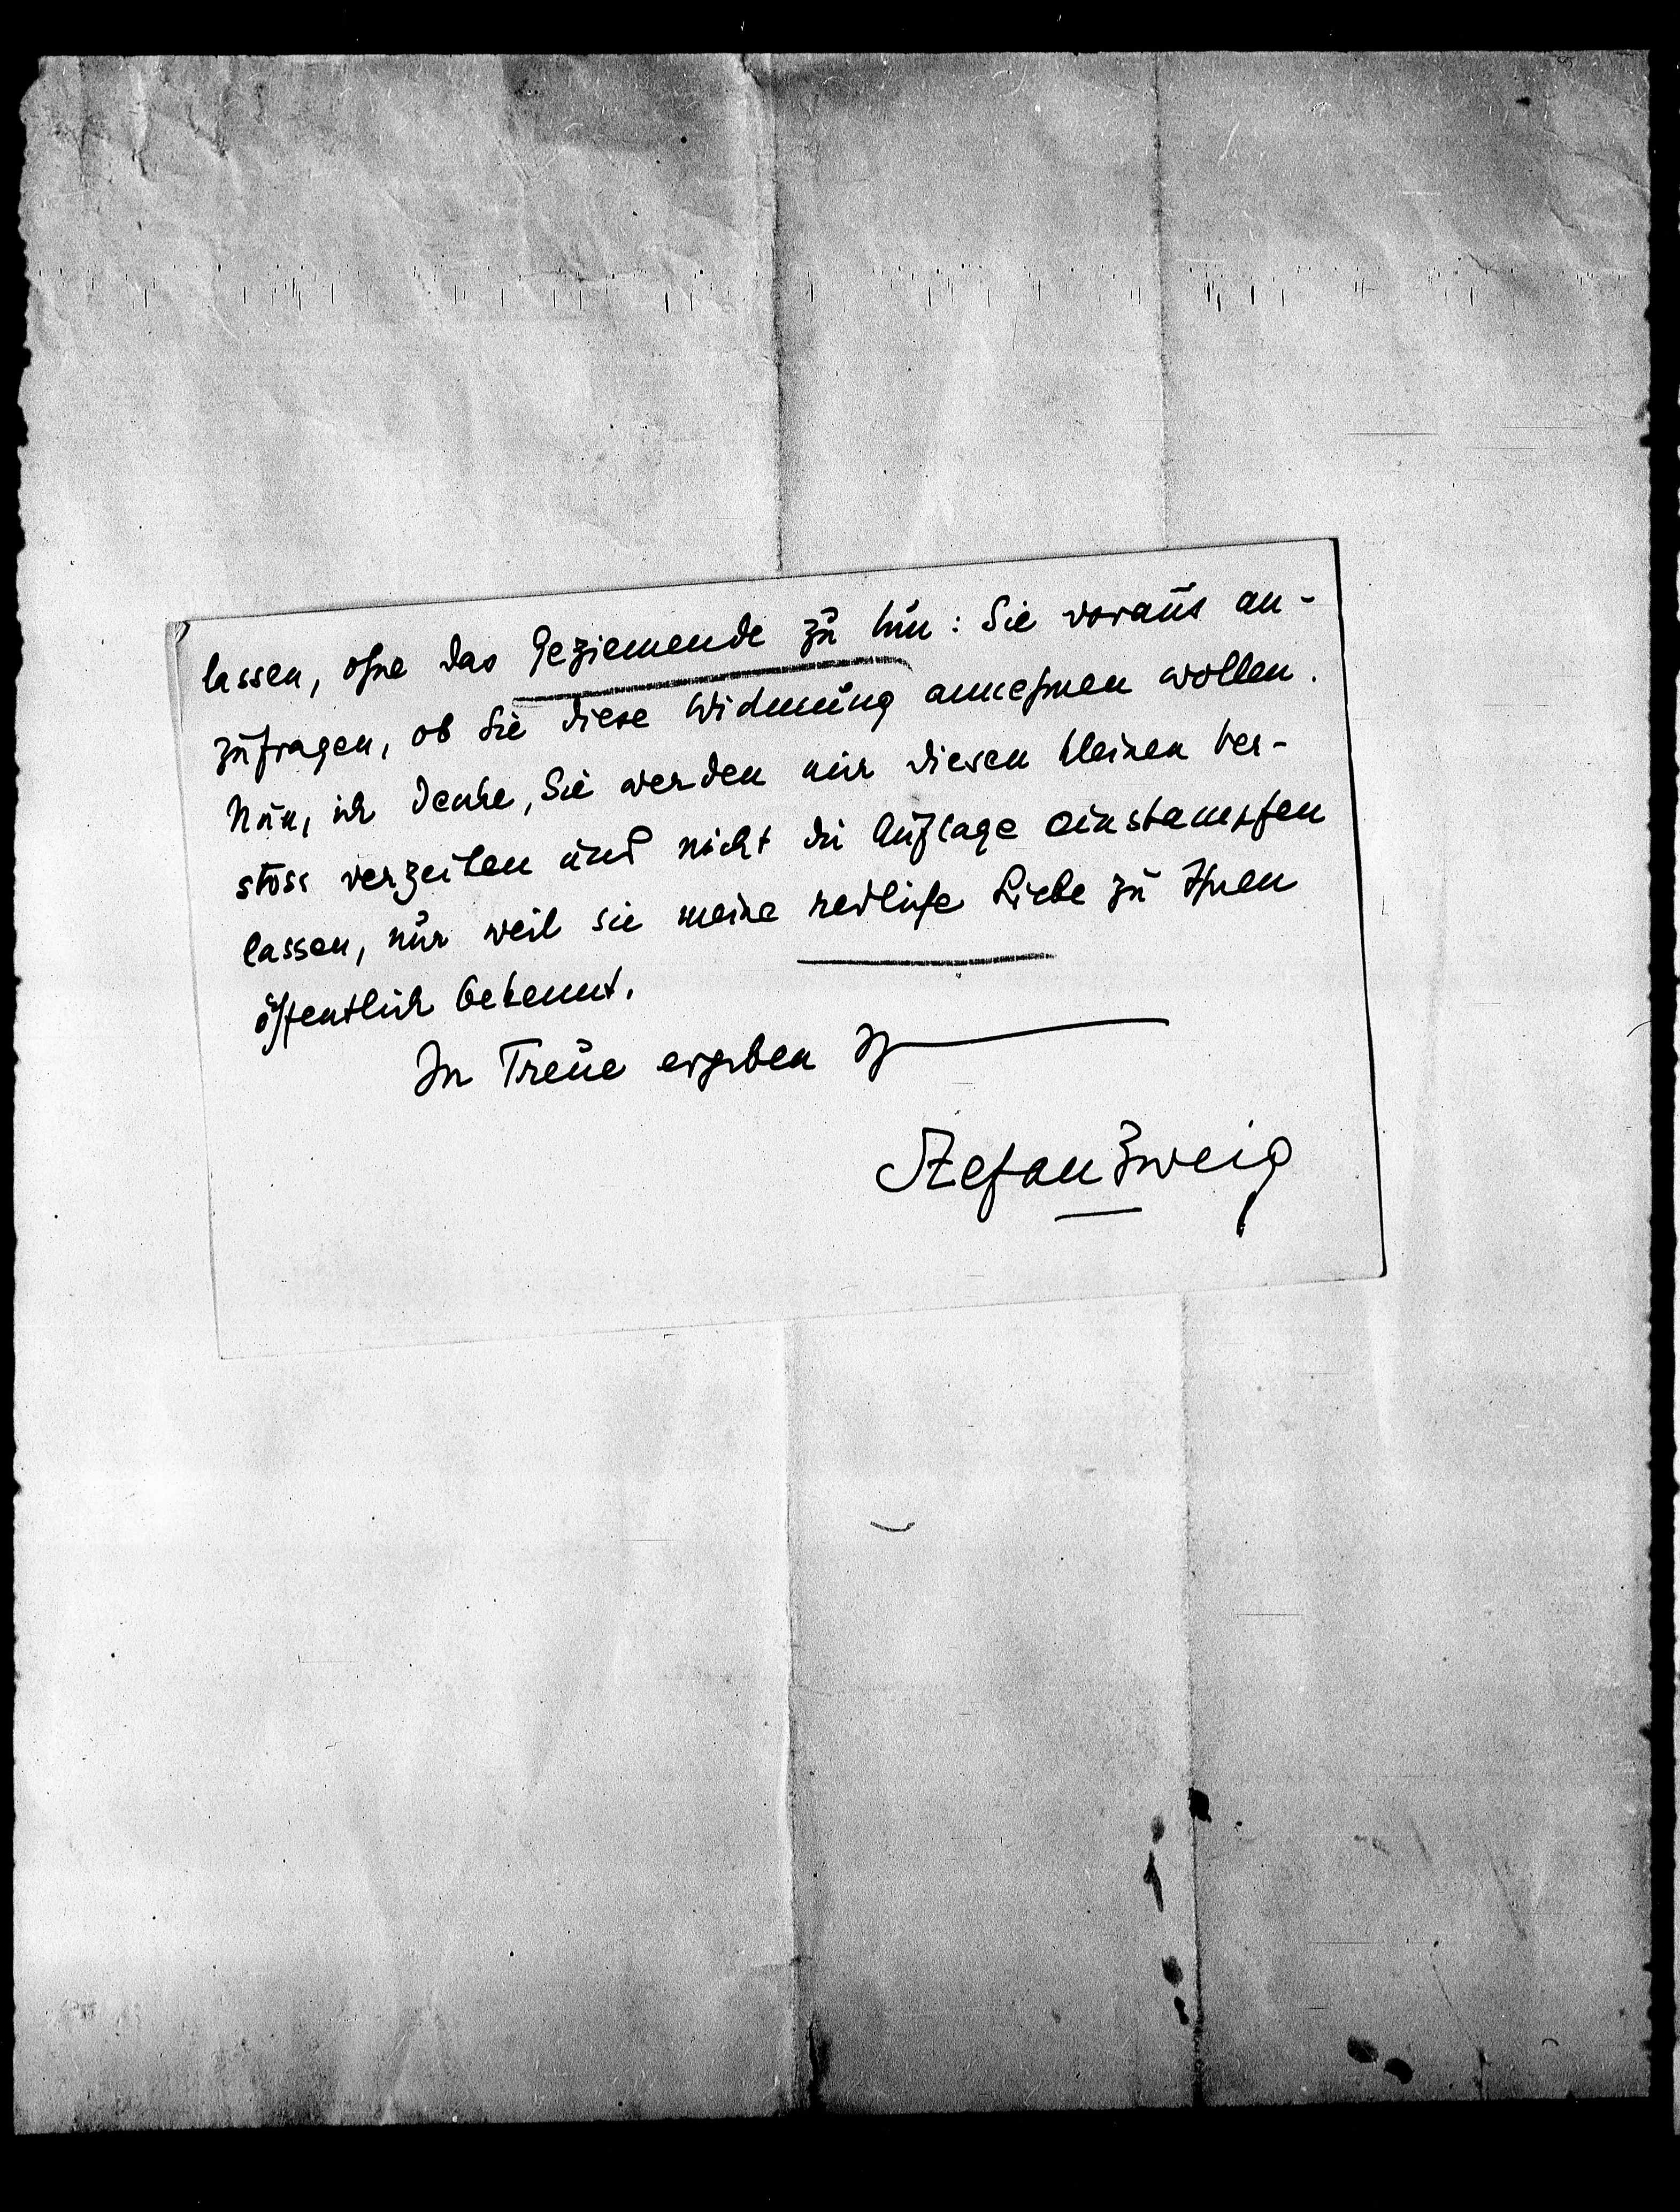 lassen, ohne das Geziemende zu tun: Sie voraus an-
zufragen, ob Sie diese Widmung annehmen wollen.
Nun, ich denke, Sie werden mir diesen kleinen Ver-
stoss verzeihen und nicht die Auflage einstampfen
lassen, nur weil sie meine redliche Liebe zu Ihnen
öffentlich bekennt.
In Treue ergeben Ihr
Stefan Zweig